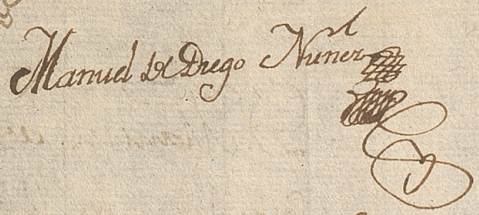 Manuel de Diego Nuñez